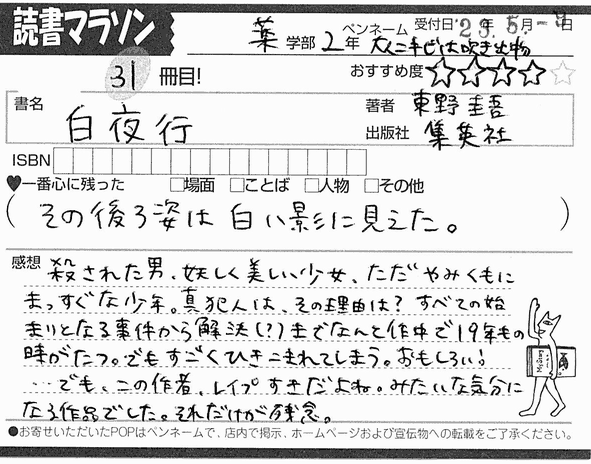 読書マラソン
薬 学部 2 年 ペンネーム 大二キビは吹き出物 受付日 '23年 5月-9日
31 冊目! おすすめ度 ★★★★☆
書名 白夜行
著者 東野圭吾
出版社 集英社
ISBN
♥一番心に残った □場面 □ことば □人物 □その他
(その後ろ姿は白い影に見えた。)
感想 殺された男、妖しく美しい少女、ただやみくもに
まっすぐな少年。真犯人は、その理由は?すべての始
まりとなる事件から解決(?)までなんと作中で19年もの
時がたつ。でもすごくひきこまれてしまう。おもしろい!
…でも、この作者、レイプすきだよね。みたいな気分に
なる作品でした。それだけが残念。
●お寄せいただいたPOPはペンネームで、店内で掲示、ホームページおよび宣伝物への転載をご了承ください。